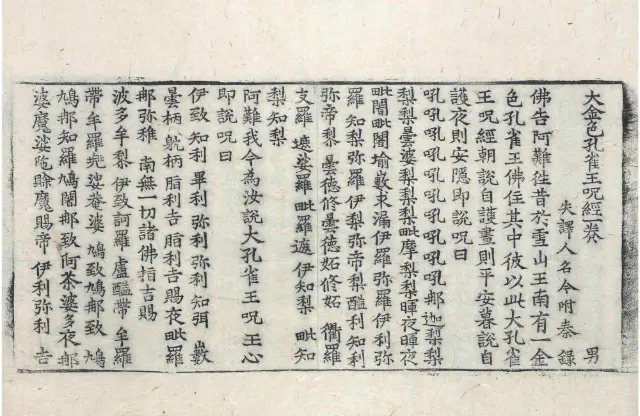 大金色孔雀王呪經一卷 男
失譯人名今附秦録
佛告阿難往昔於雪山王南有一金
色孔雀王佛住其中彼以此大孔雀
王呪經朝說自護晝則平安暮說自
護夜則安隱即說呪曰
吼吼吼吼吼吼吼吼吼吼那迦梨梨
梨梨曇婆梨梨梨毗摩梨梨暉夜暉夜
毗闇毗闍堬數求漏伊羅弥羅伊利弥
羅知梨弥羅伊梨弥帝梨醯利知利
弥帝梨曇德修曇德妬修妬 衢羅
支羅 婆娑羅毗羅遮 伊知梨 毗知
梨知梨
阿難我今為汝說大孔雀王呪王心
即說呪曰
伊致 知利 畢利 弥利 弥利 知弭 數
曇柄 柄 脂利吉 脂利吉賜夜毗羅
那弥稚 南無一切諸佛指吉賜
波多牟梨 伊致訶羅 盧醯帶 牟羅
帶牟羅兜娑眷婆 鳩致鳩那致 鳩
鳩那知羅鳩闍那致阿茶婆多夜那
婆魔娑陁賒魔賜帝 伊利弥利 吉